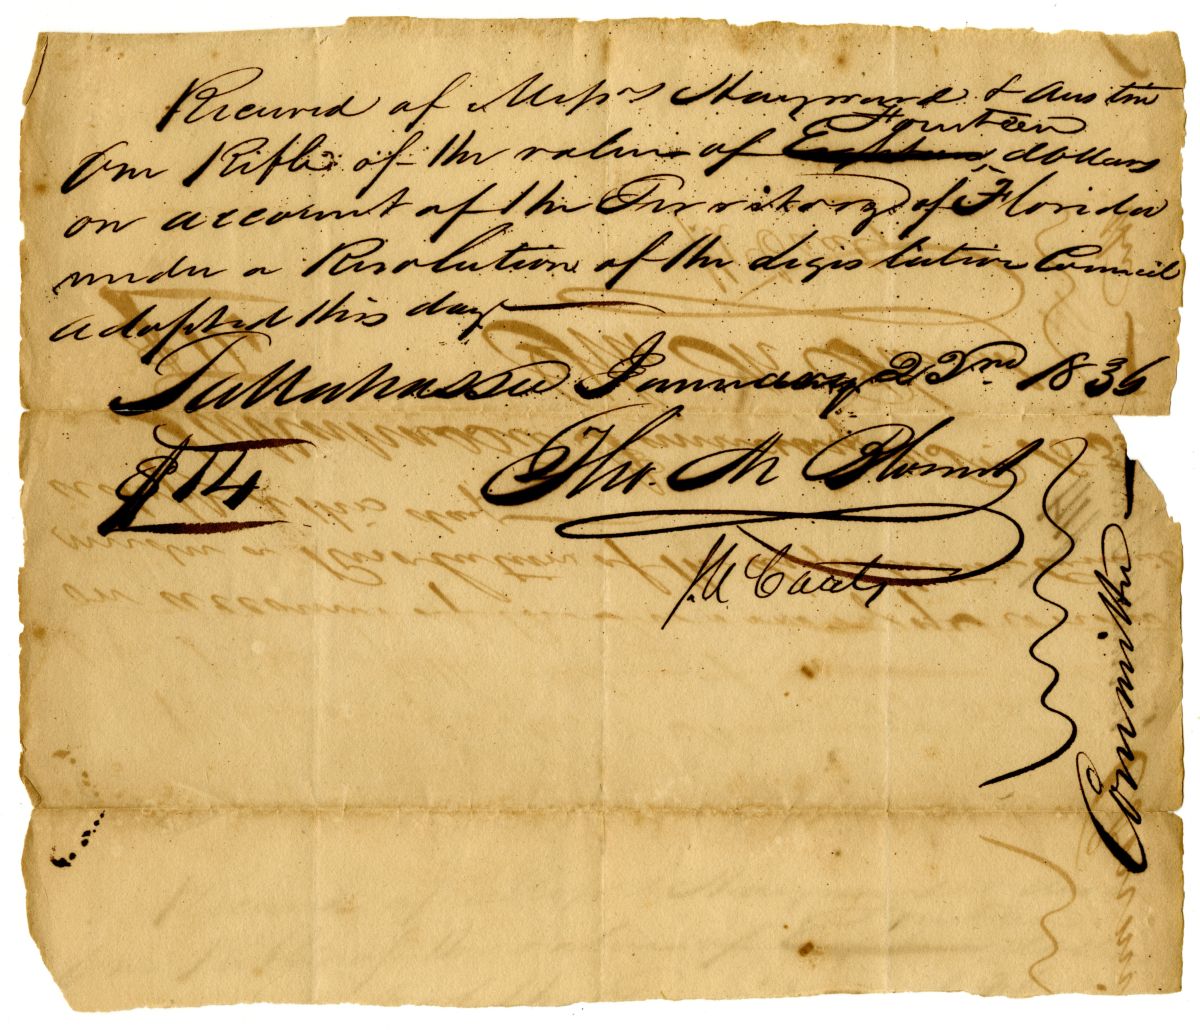 Received of Messrs Hayward & Austin
One Rifle of the value of Eighteen Fourteen dollars
on account of the Territory of Florida
under a Resolution of the Legislative Council
adopted this day
Tallahassee January 23rd 1836
$14
Tho. M Blount
Committee